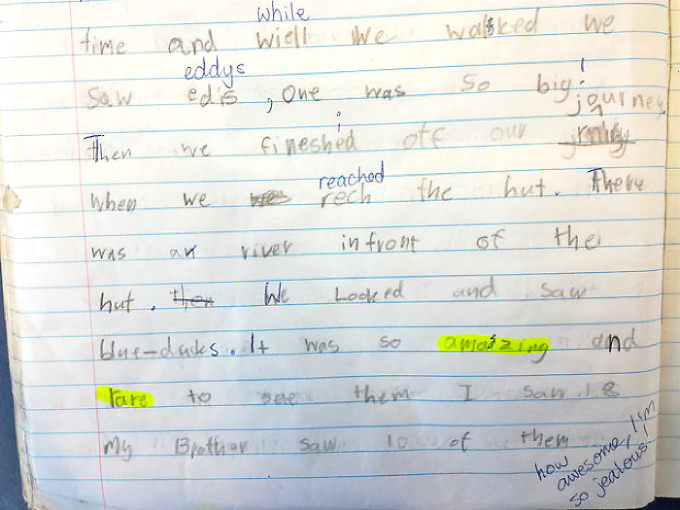 while
time and wiell We walked we
eddys
Saw edis , One was So big !
journey.
Then we fineshed off our
reached
When we rech the hut. There
was an river infront of the
hut. then We Looked and saw
blue-ducks. It was so amaizing and
rare to see them I saw 8
My Brother saw 10 of them
how awesome! I'm
so jealous!